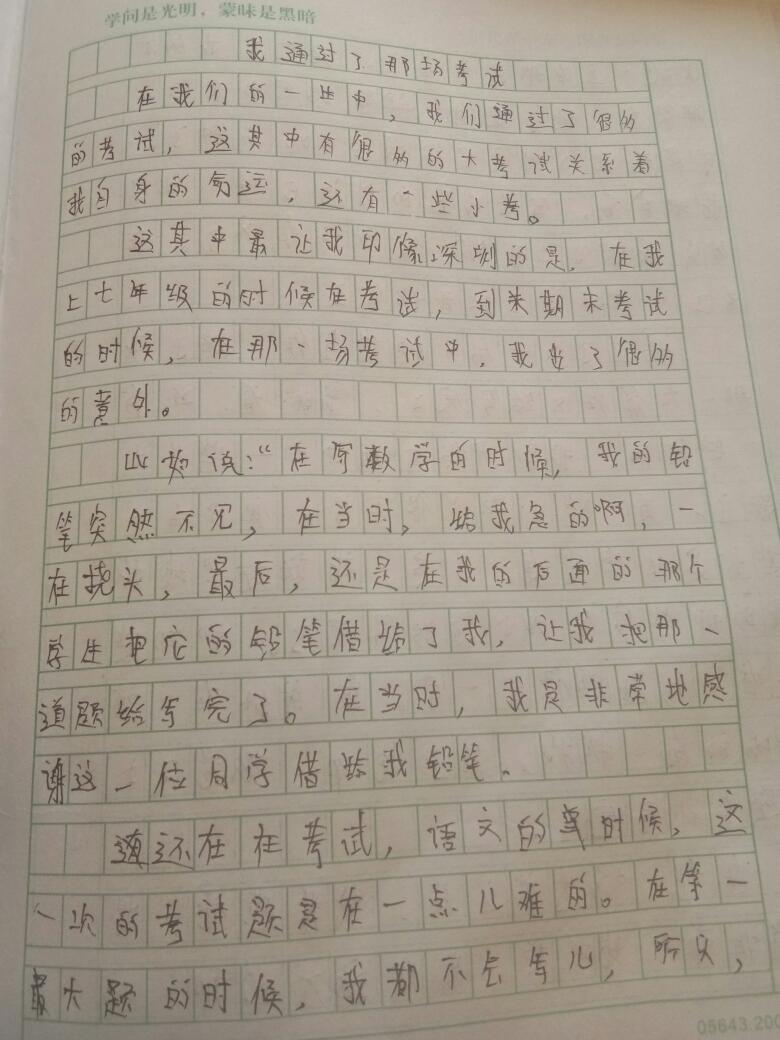 学问是光明，蒙昧是黑暗
我通过了那场考试
在我们的一生中，我们通过了很多
的考试，这其中有很多的大考试关系着
我自身的命运，还有一些小考。
这其中最让我印像深圳的是，在我
上七年级的时候在考试，到末期末考试
的时候，在那一场考试中，我出了很多
的意外。
比如说：“在写数学的时候，我的铅
笔突然不见，在当时，给我急的啊，一
在挠头，最后，还是在我的后面的那个
学生把它的铅笔借给了我，让我把那一
道题给写完了。在当时，我是非常地感
谢这一位同学借给我铅笔。
还在在考试，语文的时候，这
一次的考试题是在一点儿难的。在第一
最大题的时候，我都不会写儿，所以，
05643.200